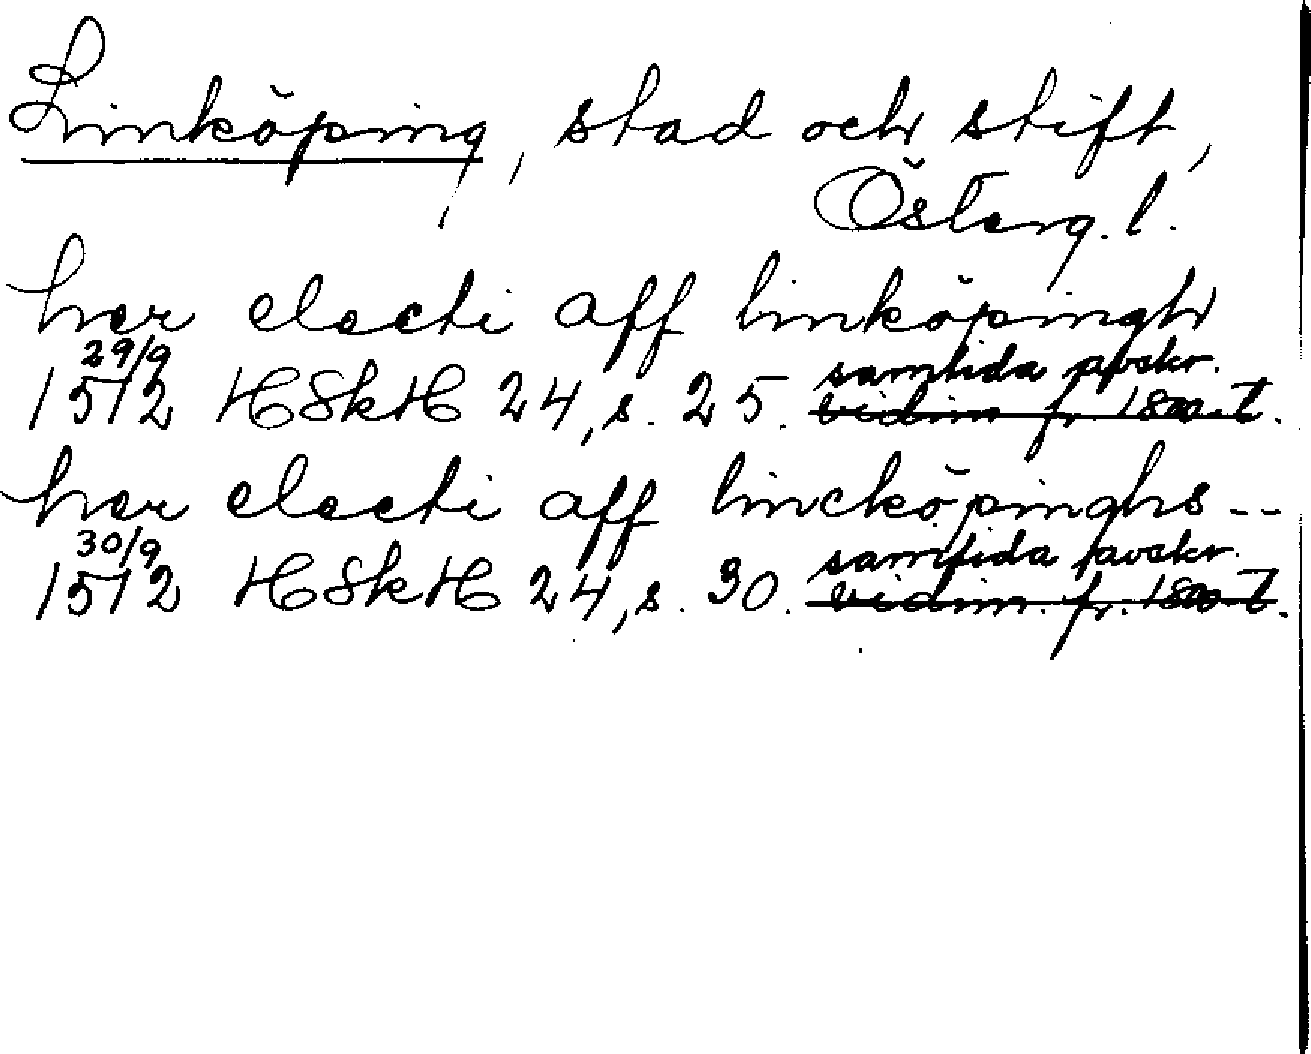 Linköping, stad och stift,
Österg. l.
her electi aff linköpingh
29/9 samtida avskr.
1512 HSkH 24, s. 25. vidim fr. 1800-t.
her electi aff lincköpinghs --
30/9 samtida avskr.
1512 HSkH 24, s. 30. vidim. fr. 1800-t.